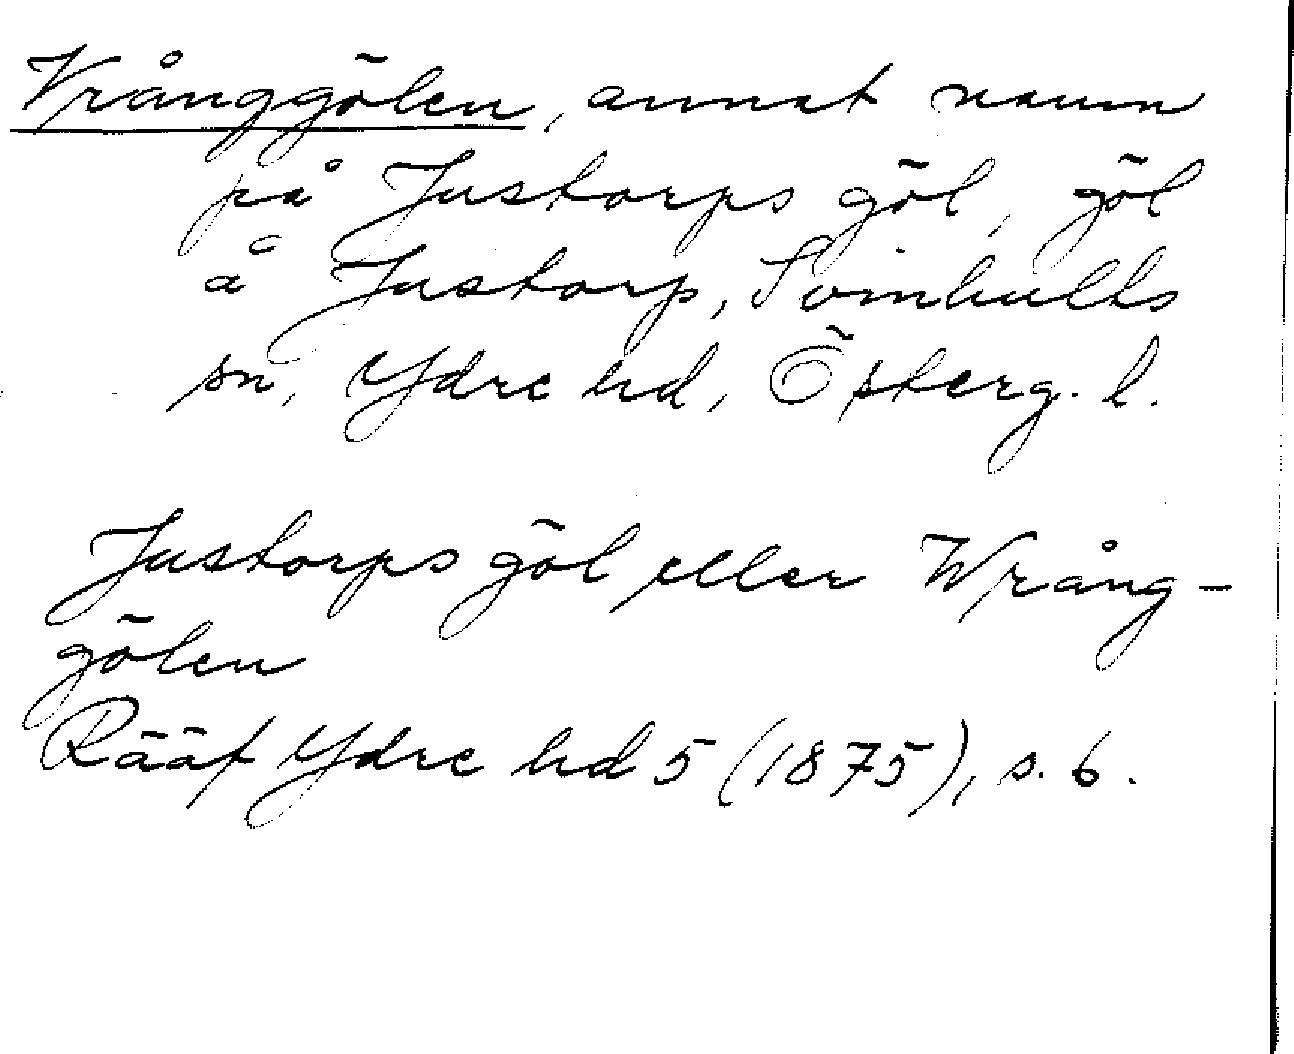 Vrånggölen, annat namn
på Justorps göl, göl
å Justorp, Svinhults
sn, Ydre hd, Österg. l.
Justorps göl eller Wrång-
gölen
Rääf Ydre hd 5 (1875), s. 6.